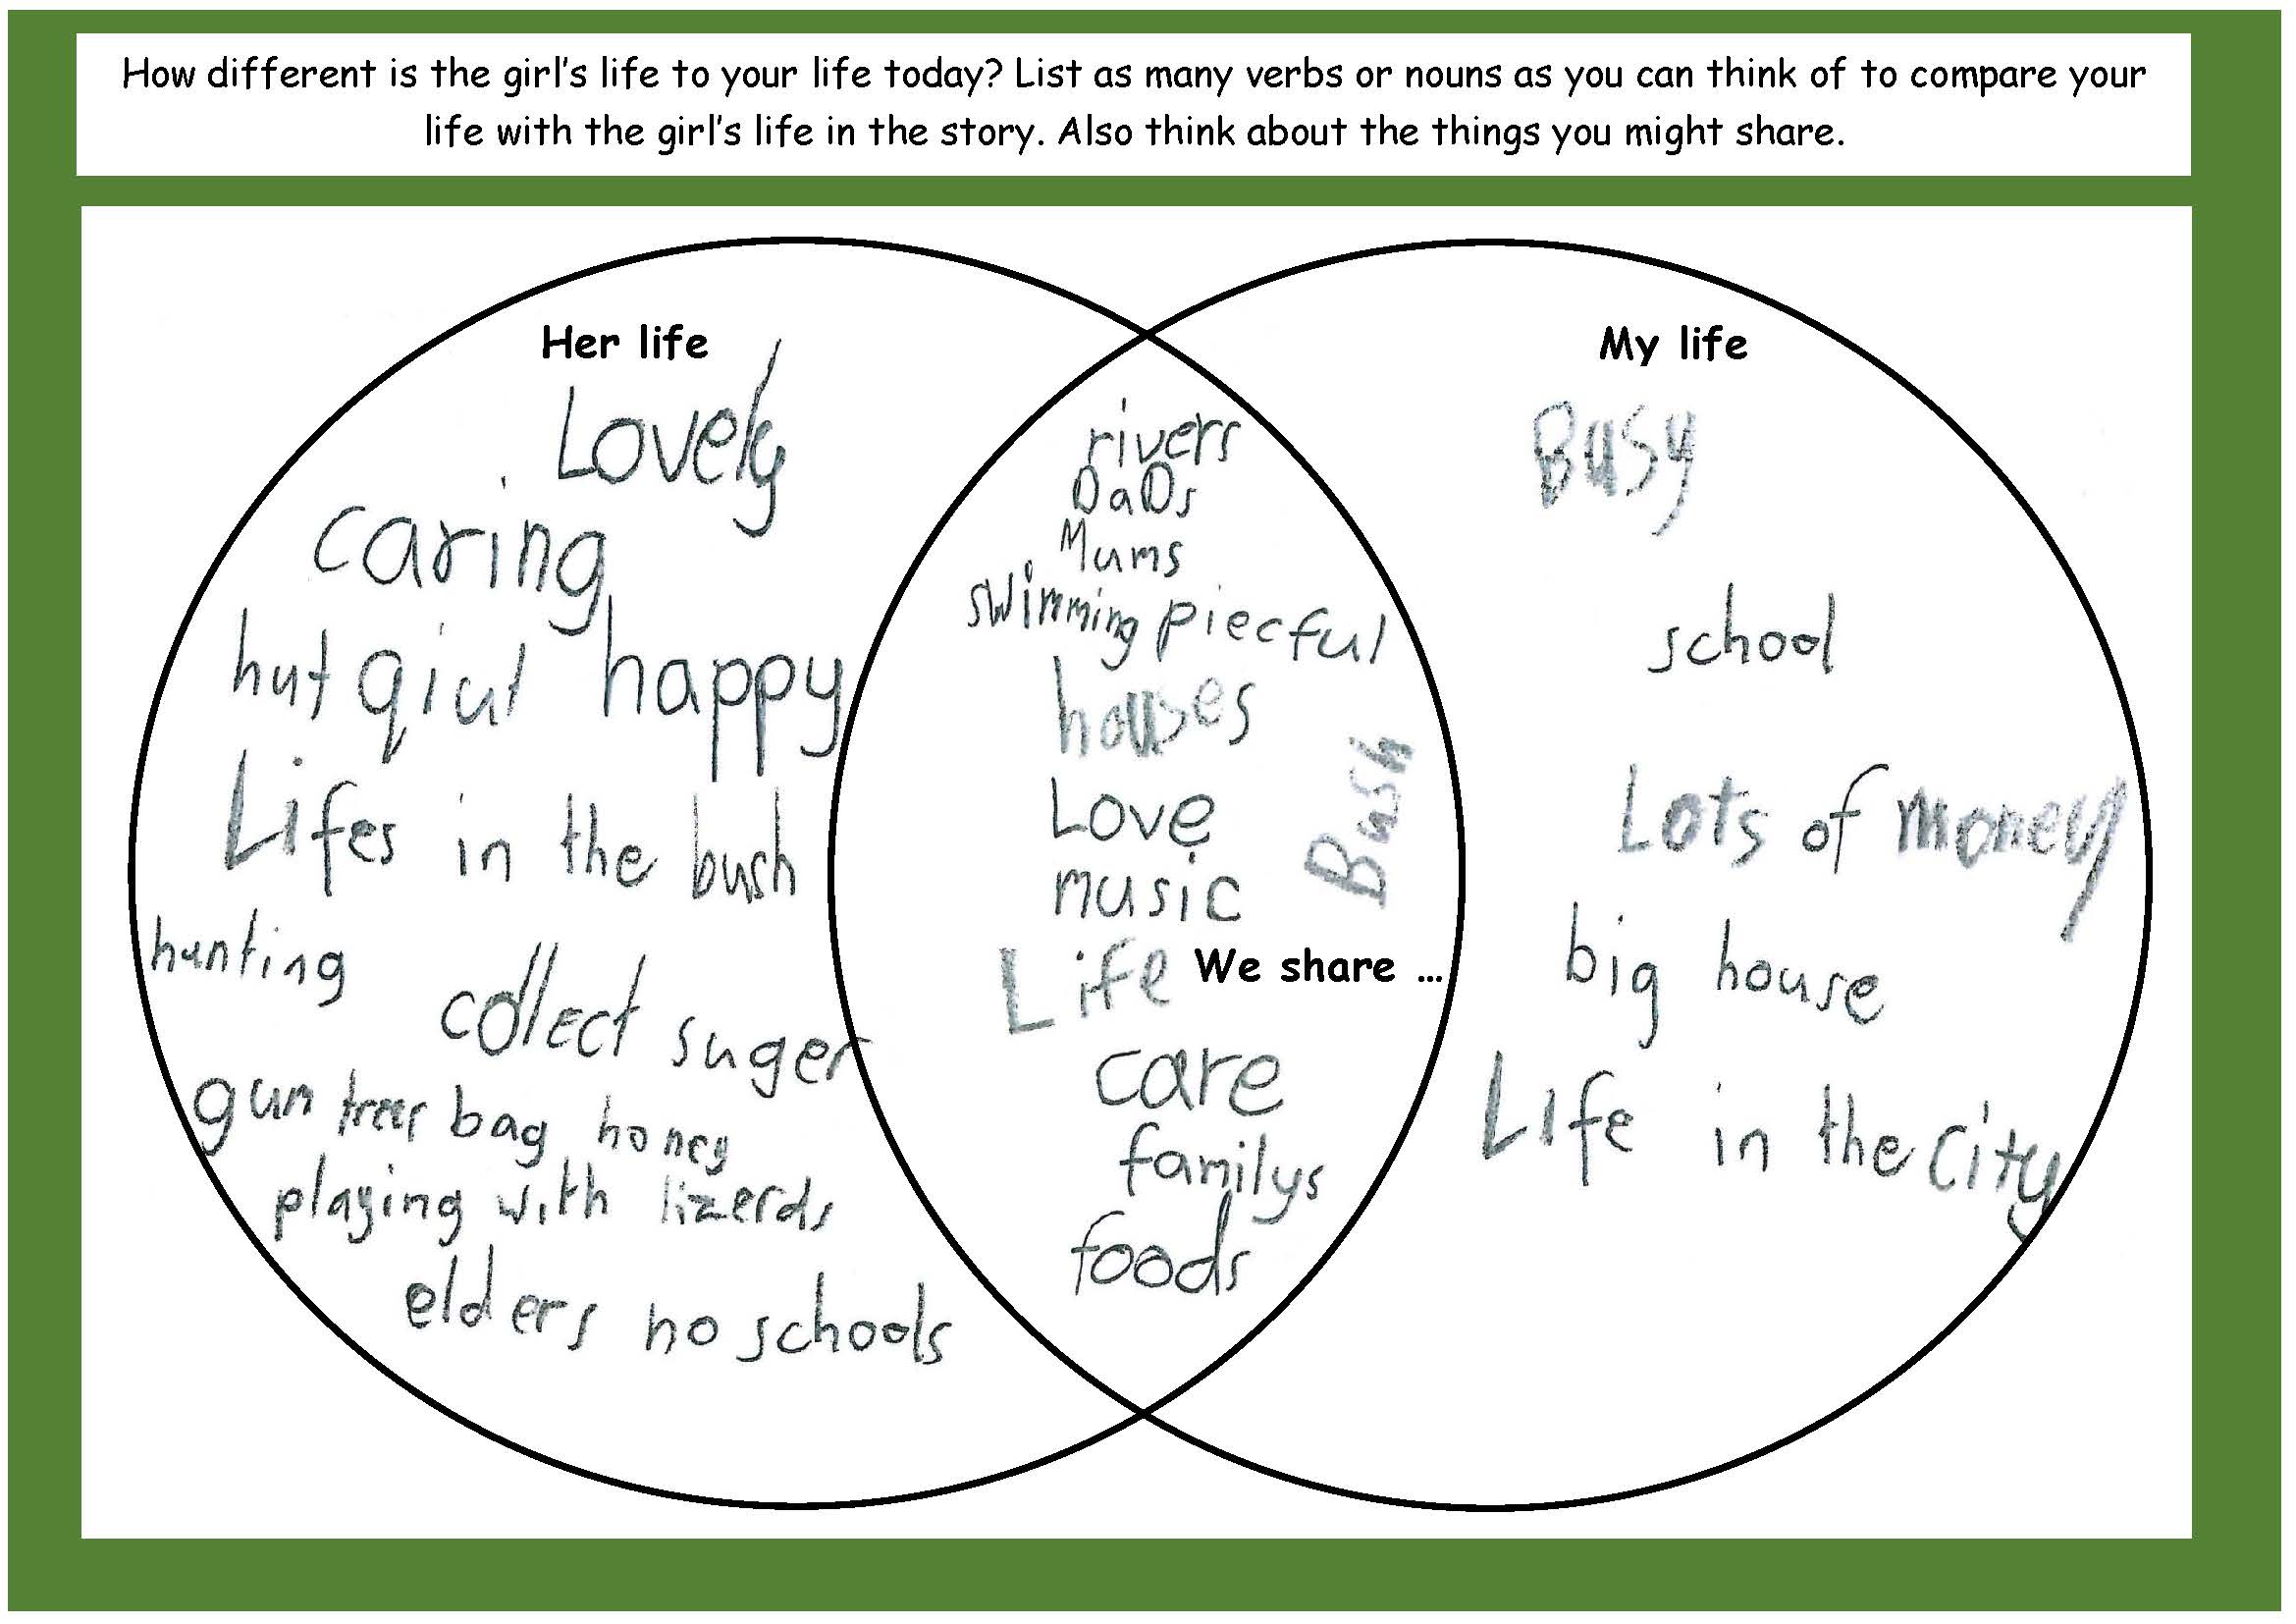 How different is the girl's life to your life today? List as many verbs or nouns as you can think of to compare your
life with the girl's life in the story. Also think about the things you might share.
Her life
Lovely
caring
hut qiut happy
Lifes in the bush
hunting
collect suger
gum trees bag honey
playing with lizerds
elders no schools
rivers
DaDs
Mums
swimming piecful
houses
Bush
Love
music
Life
We share ...
care
familys
foods
My life
Busy
school
Lots of money
big house
Life in the city